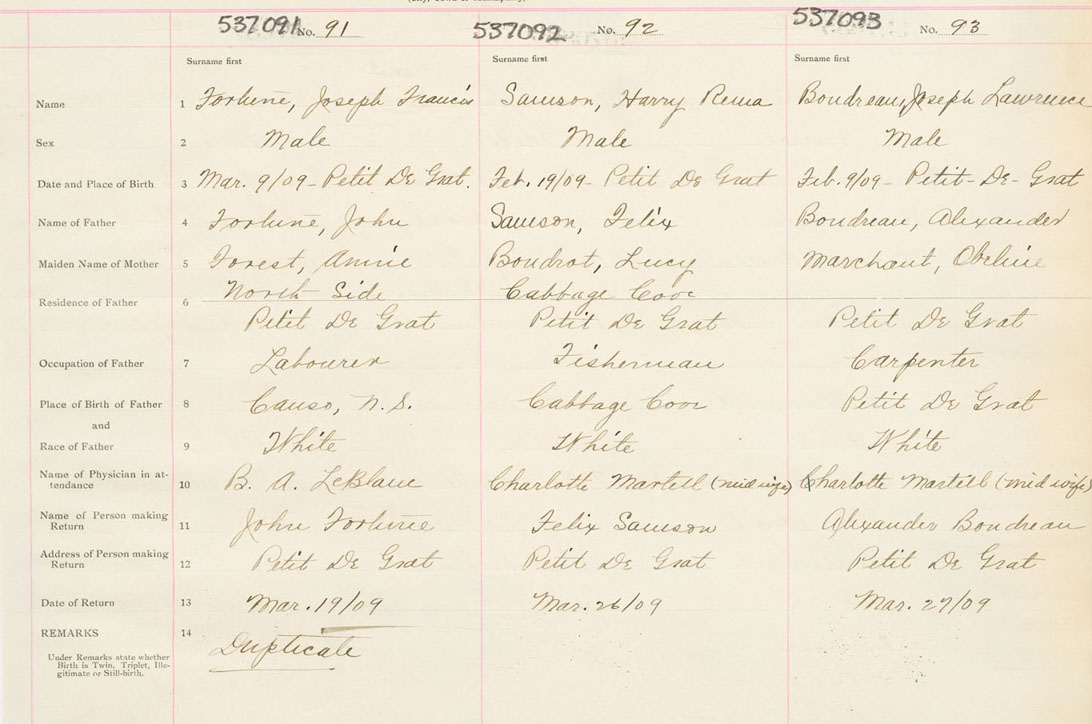 537091 No. 91 537092 No. 92 537093 No. 93
Surname first Surname first Surname first
Name 1 Fortune, Joseph Francis Samson, Harry Boudreau, Joseph Lawrence
Sex 2 Male Male Male
Date and Place of Birth 3 Mar. 9/09 - Petit De Grat. Feb. 19/09 - Petit De Grat Feb. 9/09 - Petit-De-Grat
Name of Father 4 Fortune, John Samson, Felix Boudreau, Alexander
Maiden Name of Mother 5 Forest, Annie Boudrot, Lucy Marchant, Obeline
North Side Cabbage Cove
Residence of Father 6
Petit De Grat Petit De Grat Petit De Grat
Occupation of Father 7 Labourer Fisherman Carpenter
Place of Birth of Father 8 Canso, N.S. Cabbage Cove Petit De Grat
and
Race of Father 9 White White White
Name of Physician in at-
tendance 10 B. A. LeBlanc Charlotte Martell (midwife) Charlotte Martell (midwife)
Name of Person making
Return 11 John Fortune Felix Samson Alexander Boudreau
Address of Person making
Return 12 Petit De Grat Petit De Grat Petit De Grat
Date of Return 13 Mar. 19/09 Mar. 26/09 Mar. 27/09
REMARKS 14
Duplicate
Under Remarks state whether
Birth is Twin, Triplet, Ille-
gitimate or Still-birth.